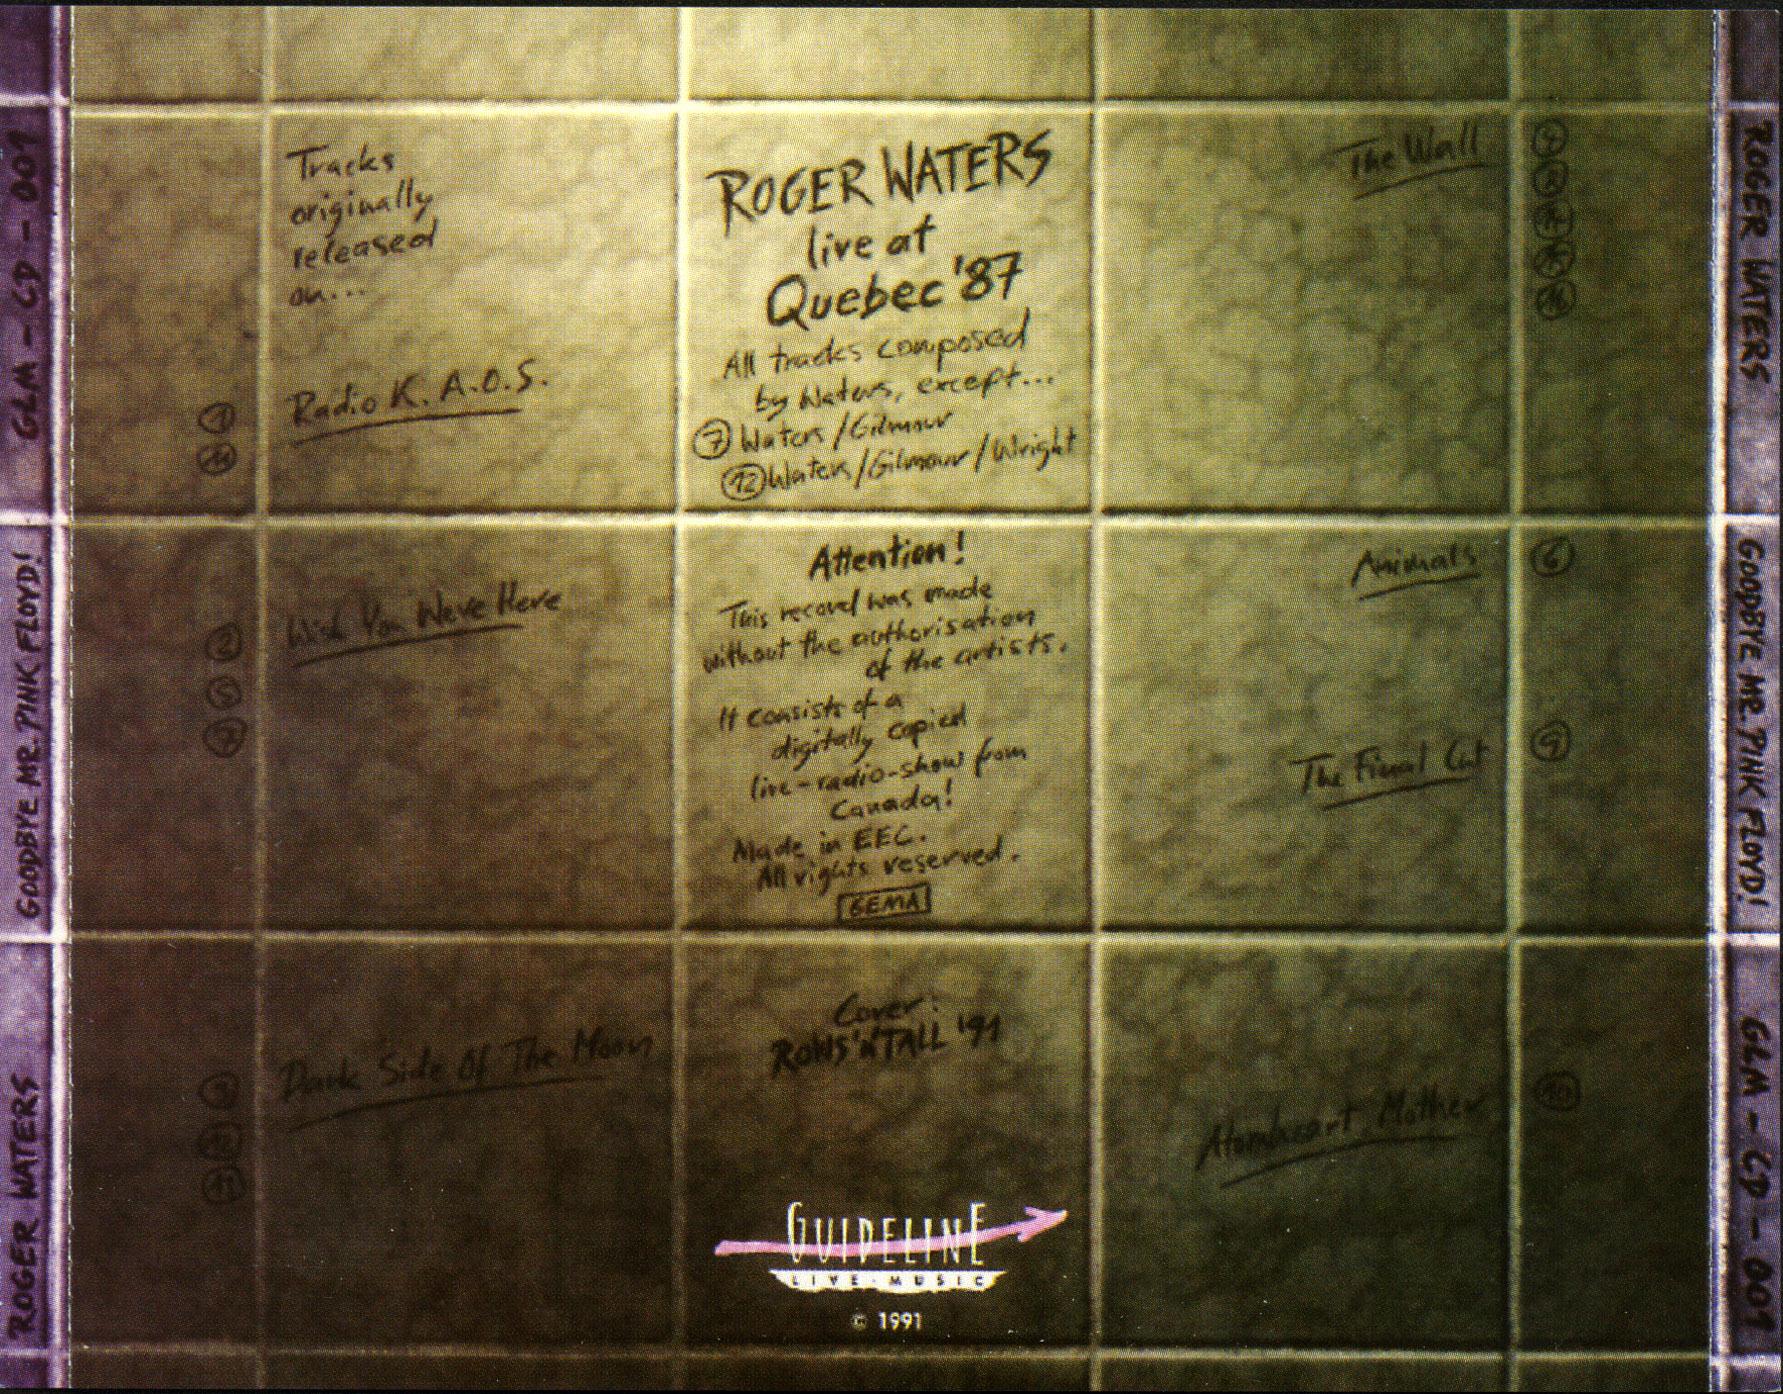 GLM - CD - 001
GOODBYE MR. PINK FLOYD!
ROGER WATERS
Tracks
originally
released
on...
Radio K.A.O.S.
1
Wish You Were Here
2
5
7
Dark Side Of The Moon
3
12
ROGER WATERS
live at
Quebec '87
All tracks composed
by Waters, except...
7 Waters/Gilmour
12 Waters/Gilmour/Wright
Attention!
This record was made
without the authorisation
of the artists.
It consists of a
digitally copied
live-radio-show from
Canada!
Made in EEC.
All rights reserved.
GEMA
Cover:
ROWS'N'TALL '91
GUIDELINE
LIVE-MUSIC
© 1991
The Wall
4
8
15
16
Animals
6
The Final Cut
9
Atomheart Mother
10
ROGER WATERS
GOODBYE MR. PINK FLOYD!
GLM - CD - 001